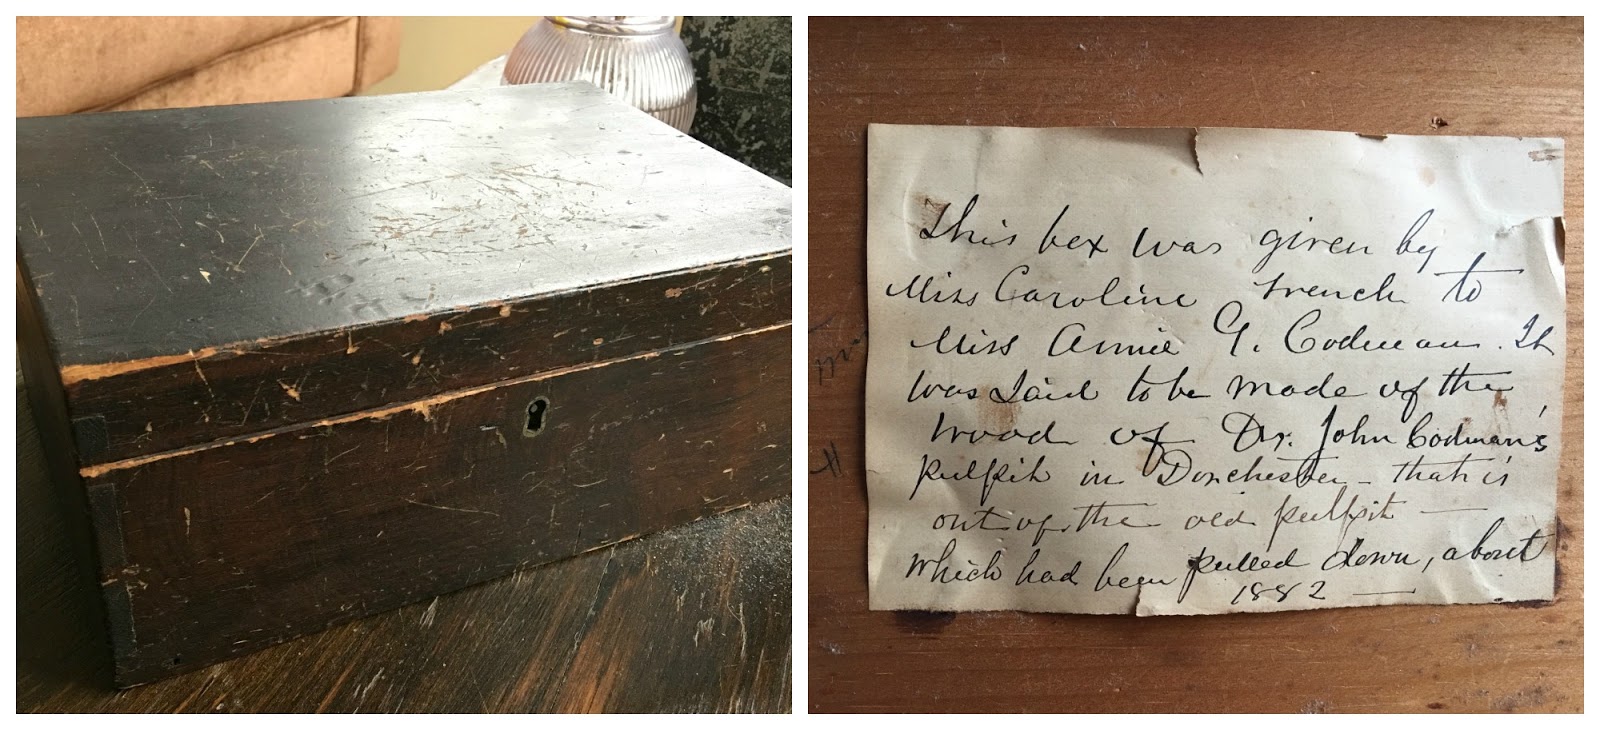 This box was given by
Miss Caroline French to
Miss Annie G. Codman. It
was said to be made of the
wood of Dr. John Codman's
pulpit in Dorchester - that is
out of the old pulpit —
which had been pulled down, about
1882 —